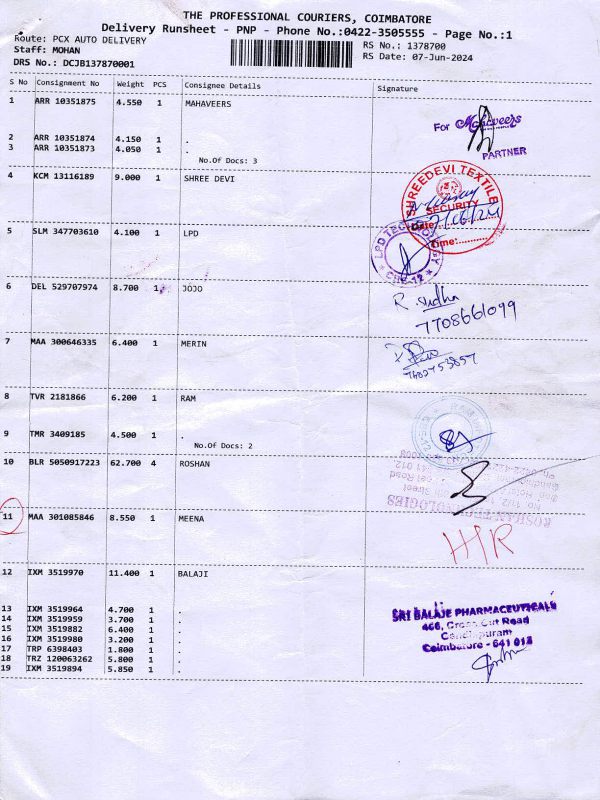 THE PROFESSIONAL COURIERS, COIMBATORE
Delivery Runsheet - PNP - Phone No.:0422-3505555 - Page No.:1
Route: PCX AUTO DELIVERY
Staff: MOHAN
DRS No.: DCJB137870001
RS No.: 1378700
RS Date: 07-Jun-2024
S No Consignment No Weight PCS Consignee Details Signature
1 ARR 10351875 4.550 1 MAHAVEERS
For Mahaveers
PARTNER
2 ARR 10351874 4.150 1 .
3 ARR 10351873 4.050 1 .
No.Of Docs: 3
4 KCM 13116189 9.000 1 SHREE DEVI
SHREEDEVI TEXTILE
SECURITY
Date:
Time:
5 SLM 347703610 4.100 1 LPD
LPD TECHNOLOGY
CBE-12
6 DEL 529707974 8.700 1 JOJO
R. Sudha
7708661099
7 MAA 300646335 6.400 1 MERIN
8 TVR 2181866 6.200 1 RAM
9 TMR 3409185 4.500 1 .
No.Of Docs: 2
10 BLR 5050917223 62.700 4 ROSHAN
11 MAA 301085846 8.550 1 MEENA
12 IXM 3519970 11.400 1 BALAJI
13 IXM 3519964 4.700 1 .
14 IXM 3519959 3.700 1 .
15 IXM 3519882 6.400 1 .
16 IXM 3519980 3.200 1 .
17 TRP 6398403 1.800 1 .
18 TRZ 120063262 5.800 1 .
19 IXM 3519894 5.850 1 .
SRI BALAJE PHARMACEUTICALS
466, Cross Cut Road
Gandhipuram
Coimbatore - 641 012